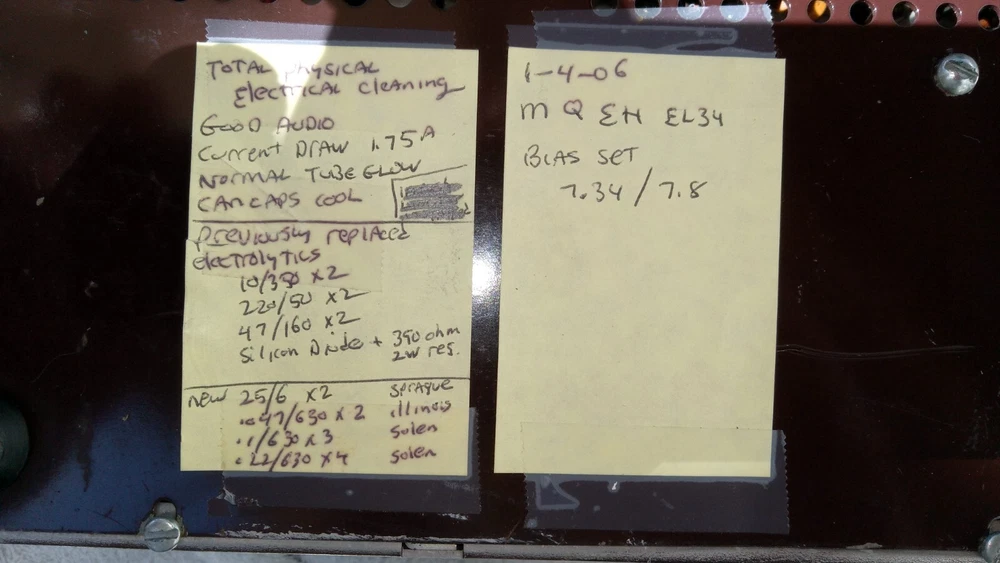 TOTAL PHYSICAL
ELECTRICAL CLEANING
GOOD AUDIO
CURRENT DRAW 1.75A
NORMAL TUBE GLOW
CAN CAPS COOL
PREVIOUSLY REPLACED
ELECTROLYTICS
10/350 X2
220/50 X2
47/160 X2
SILICON DIODE + 390 ohm
2W RES.
NEW 25/6 X2 SPRAGUE
.047/630 X 2 ILLINOIS
.1/630 X 3 SOLEN
.22/630 X4 SOLEN
1-4-06
M Q EH EL34
BIAS SET
7.34/7.8